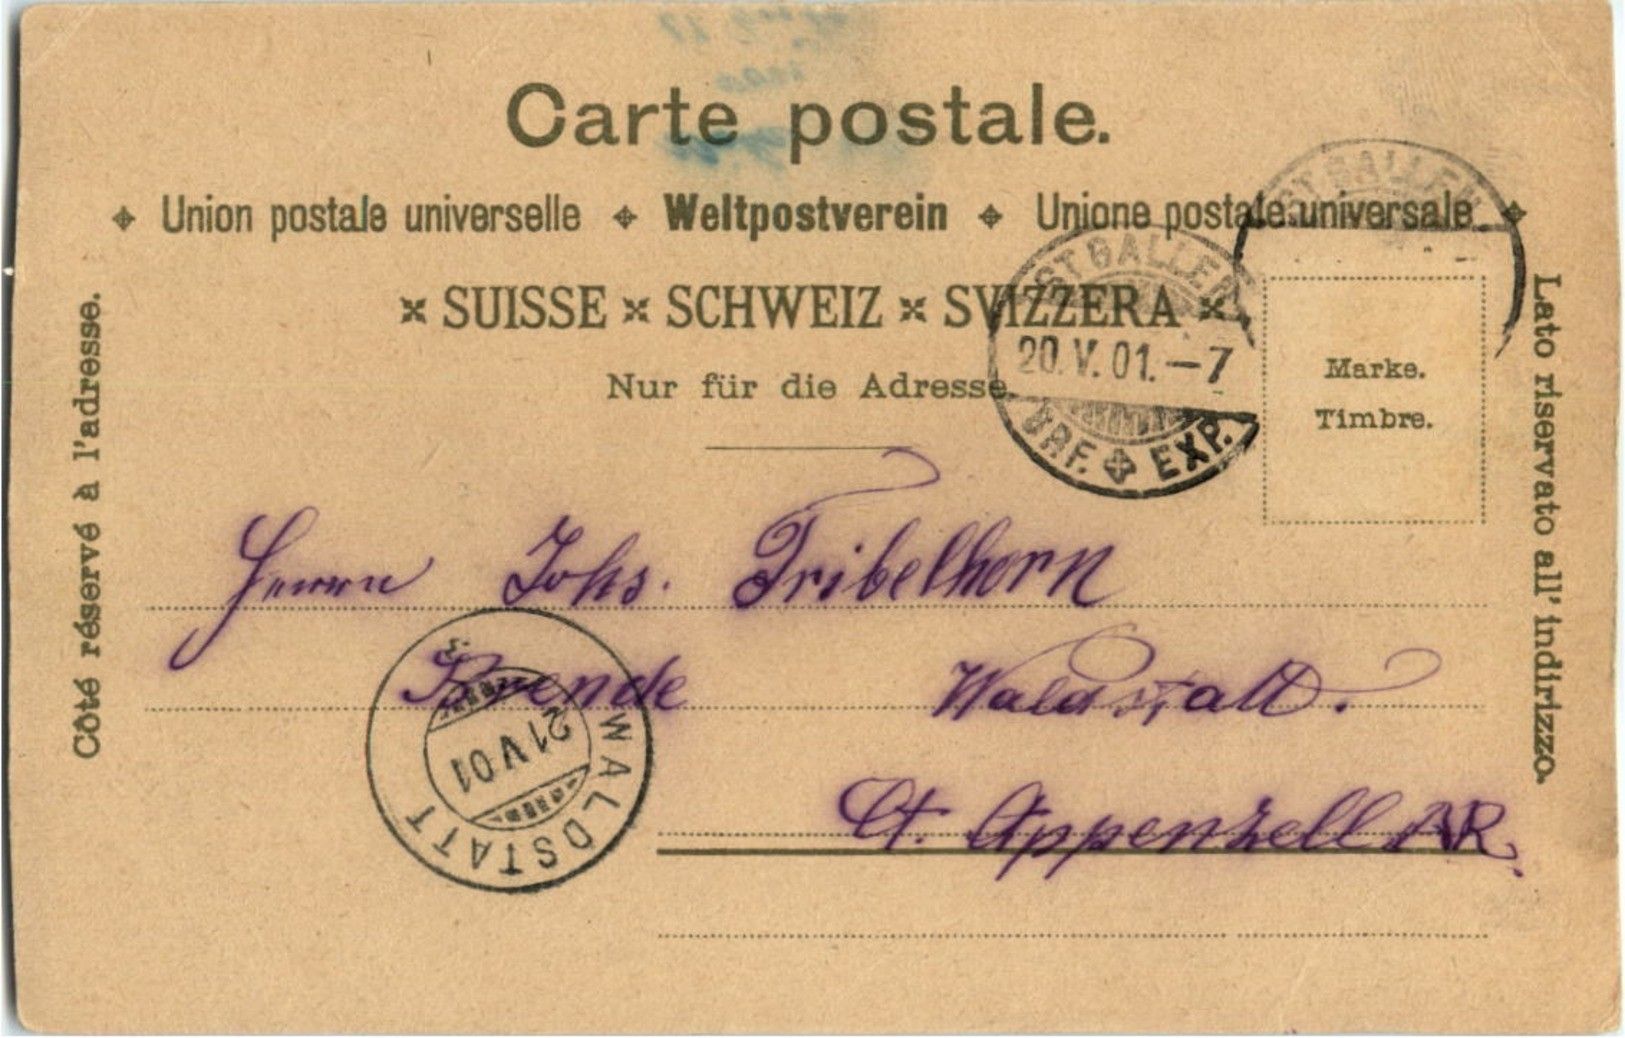 Carte postale.
Union postale universelle Weltpostverein Unione postale universale
SUISSE SCHWEIZ SVIZZERA
Nur für die Adresse.
Côté réservé à l'adresse.
Lato riservato all' indirizzo.
Marke.
Timbre.
ST GALLEN
ST GALLEN
20.V.01.-7
BRF. EXP.
Herrn Johs. Tribelhorn
Waldstatt.
Ct. Appenzell AR.
WALDSTATT
21 V 01